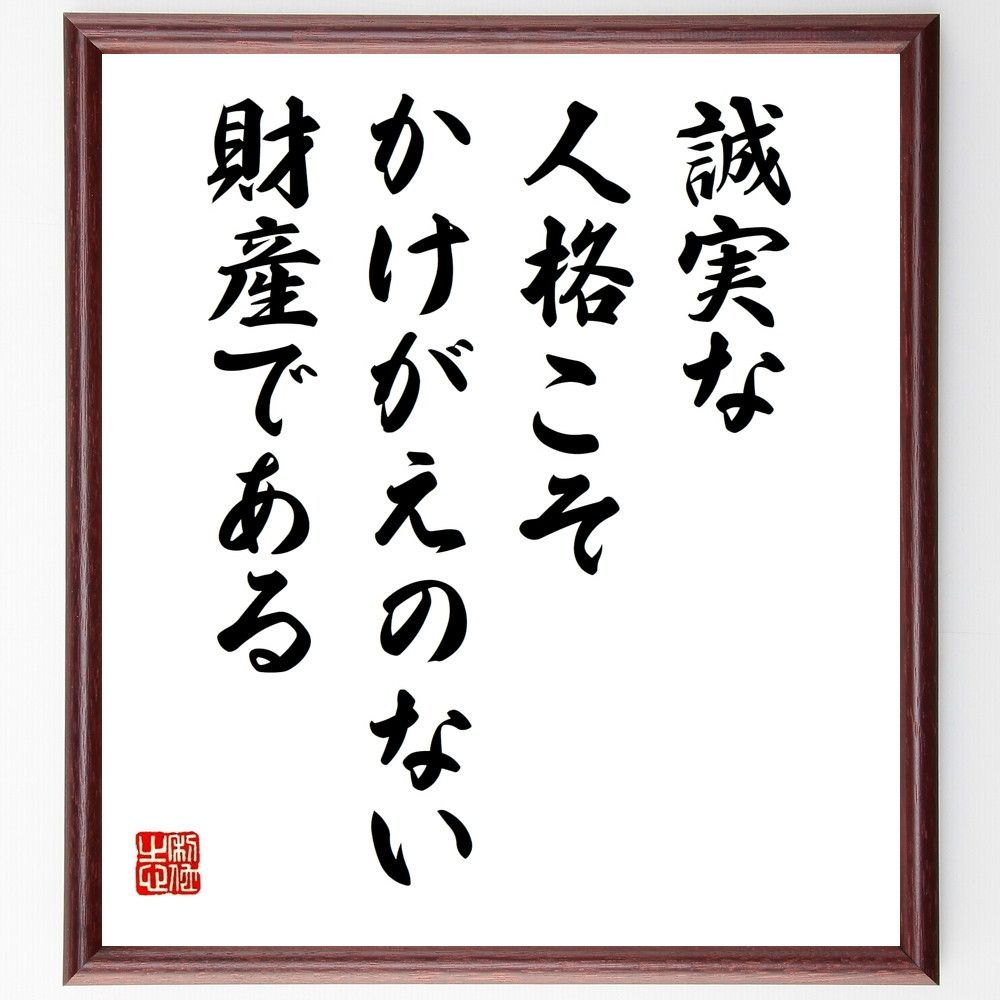 誠実な
人格こそ
かけがえのない
財産である